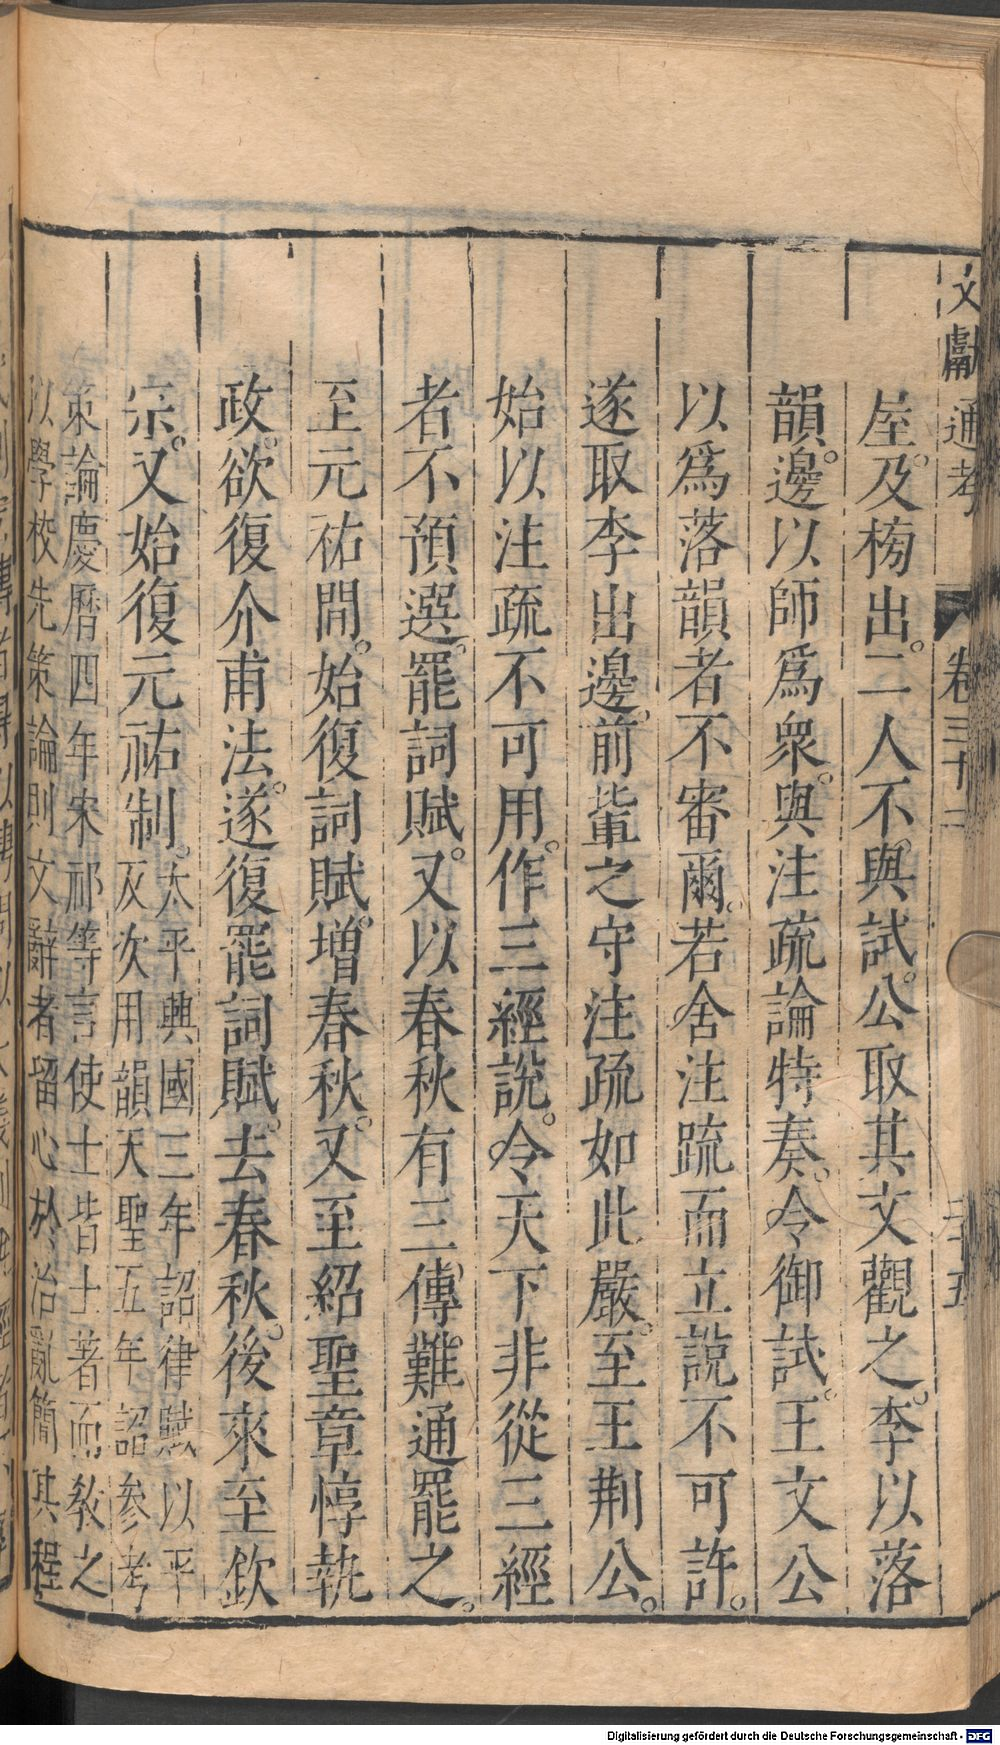 文獻通考 卷三十二 二十五
屋。及榜出。二人不。與試。公取其文觀之。李以落
韻。邊以師爲衆。與注疏論特奏。令御試。王文公
以爲落韻者不審爾。若舍注疏而立說不可許。
遂取李出邊。前輩之守注疏如此嚴。至王荆公。
始以注疏不可用。作三經說。令天下非從三經
者不預選。罷詞賦。又以春秋有三傳難通罷之。
至元祐間。始復詞賦。增春秋。又至紹聖章惇執
政。欲復介甫法。遂復罷詞賦。去春秋。後來至欽
宗。又始復元祐制。太平興國三年詔律賦以平
仄次用韻天聖五年詔參考
策論慶曆四年宋祁等言使士皆土著而敎之
以學校先策論則文辭者留心於治亂簡其程
Digitalisierung gefördert durch die Deutsche Forschungsgemeinschaft - DFG